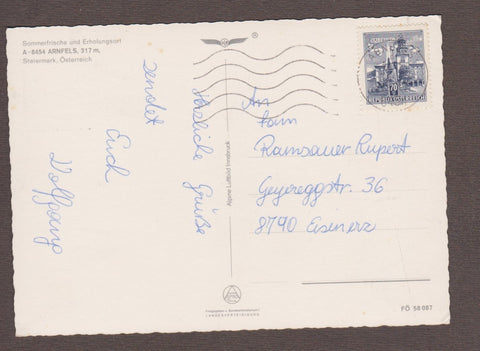 Sommerfrische und Erholungsort
A-8454 ARNFELS, 317 m,
Steiermark, Österreich
®
Herzliche Grüße
sendet
Euch
Wolfgang
Alpine Luftbild Innsbruck
An
Fam
Ramsauer Rupert
Geyereggstr. 36
8790 Eisenerz
70
REPUBLIK ÖSTERREICH
LANDESVERTEIDIGUNG
FÖ 58 087